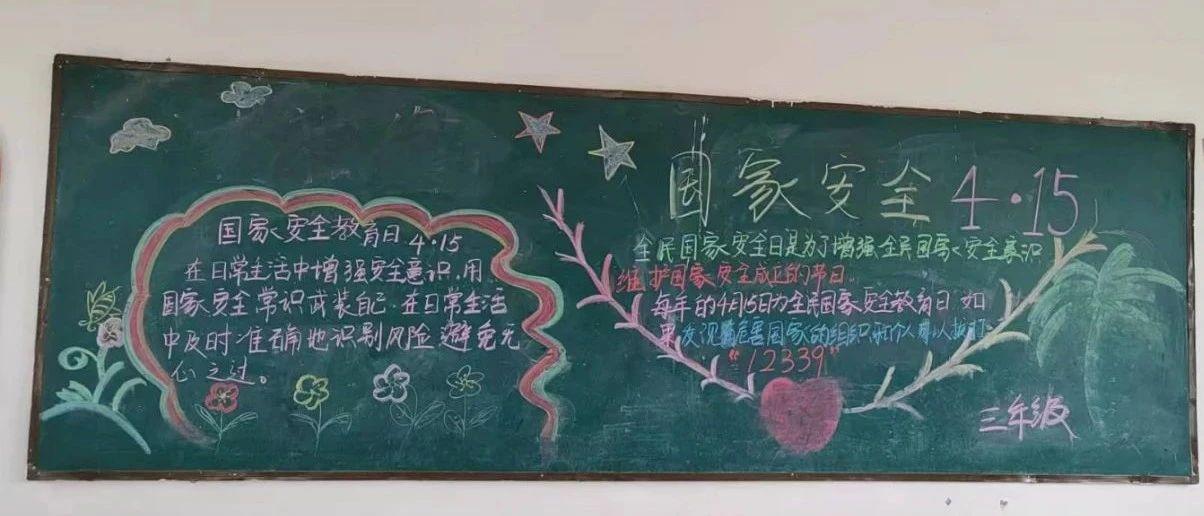 国家安全教育日4·15
在日常生活中增强安全意识,用
国家安全常识武装自己.在日常生活
中及时准确地识别风险避免无
心之过。
国家安全4·15
全民国家安全日是为了增强全民国家安全意识
维护国家安全成立的节日.
每年的4月15日为全民国家安全教育日.如
果发现危害国家的组织和个人可以拨打
"12339"
三年级